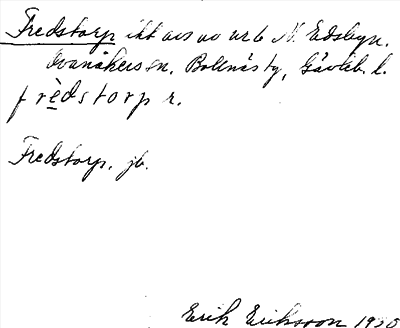 Fredstorp ikt avs av nr 6 N. Edsbyn.
Ovanåkers sn. Bollnäs tg, Gävleb. l.
frèdstorp r.
Fredstorp, jb.
Erik Eriksson 1920